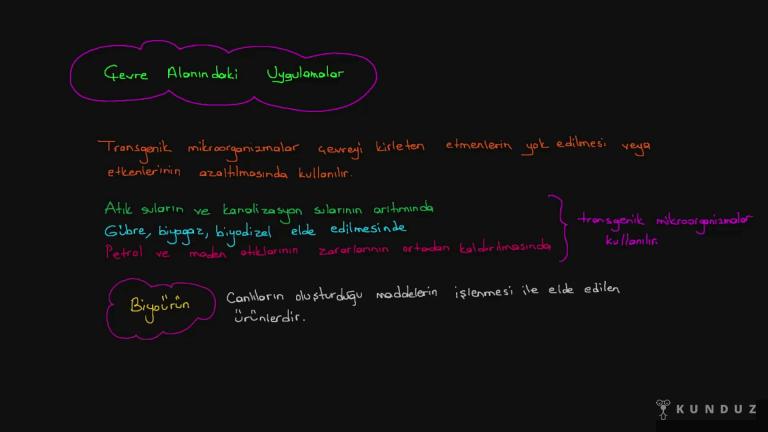 Çevre Alanındaki Uygulamalar
Transgenik mikroorganizmalar çevreyi kirleten etmenlerin yok edilmesi veya
etkenlerinin azaltılmasında kullanılır.
Atık suların ve kanalizasyon sularının arıtımında
Gübre, biyogaz, biyodizel elde edilmesinde
Petrol ve maden atıklarının zararlarının ortadan kaldırılmasında
transgenik mikroorganizmalar
kullanılır.
Biyoürün
Canlıların oluşturduğu maddelerin işlenmesi ile elde edilen
ürünlerdir.
KUNDUZ